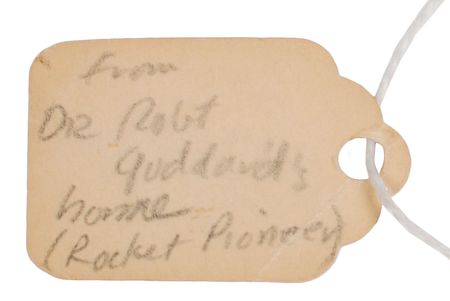 From
Dr Robt
Goddard's
home
(Rocket Pioneer)